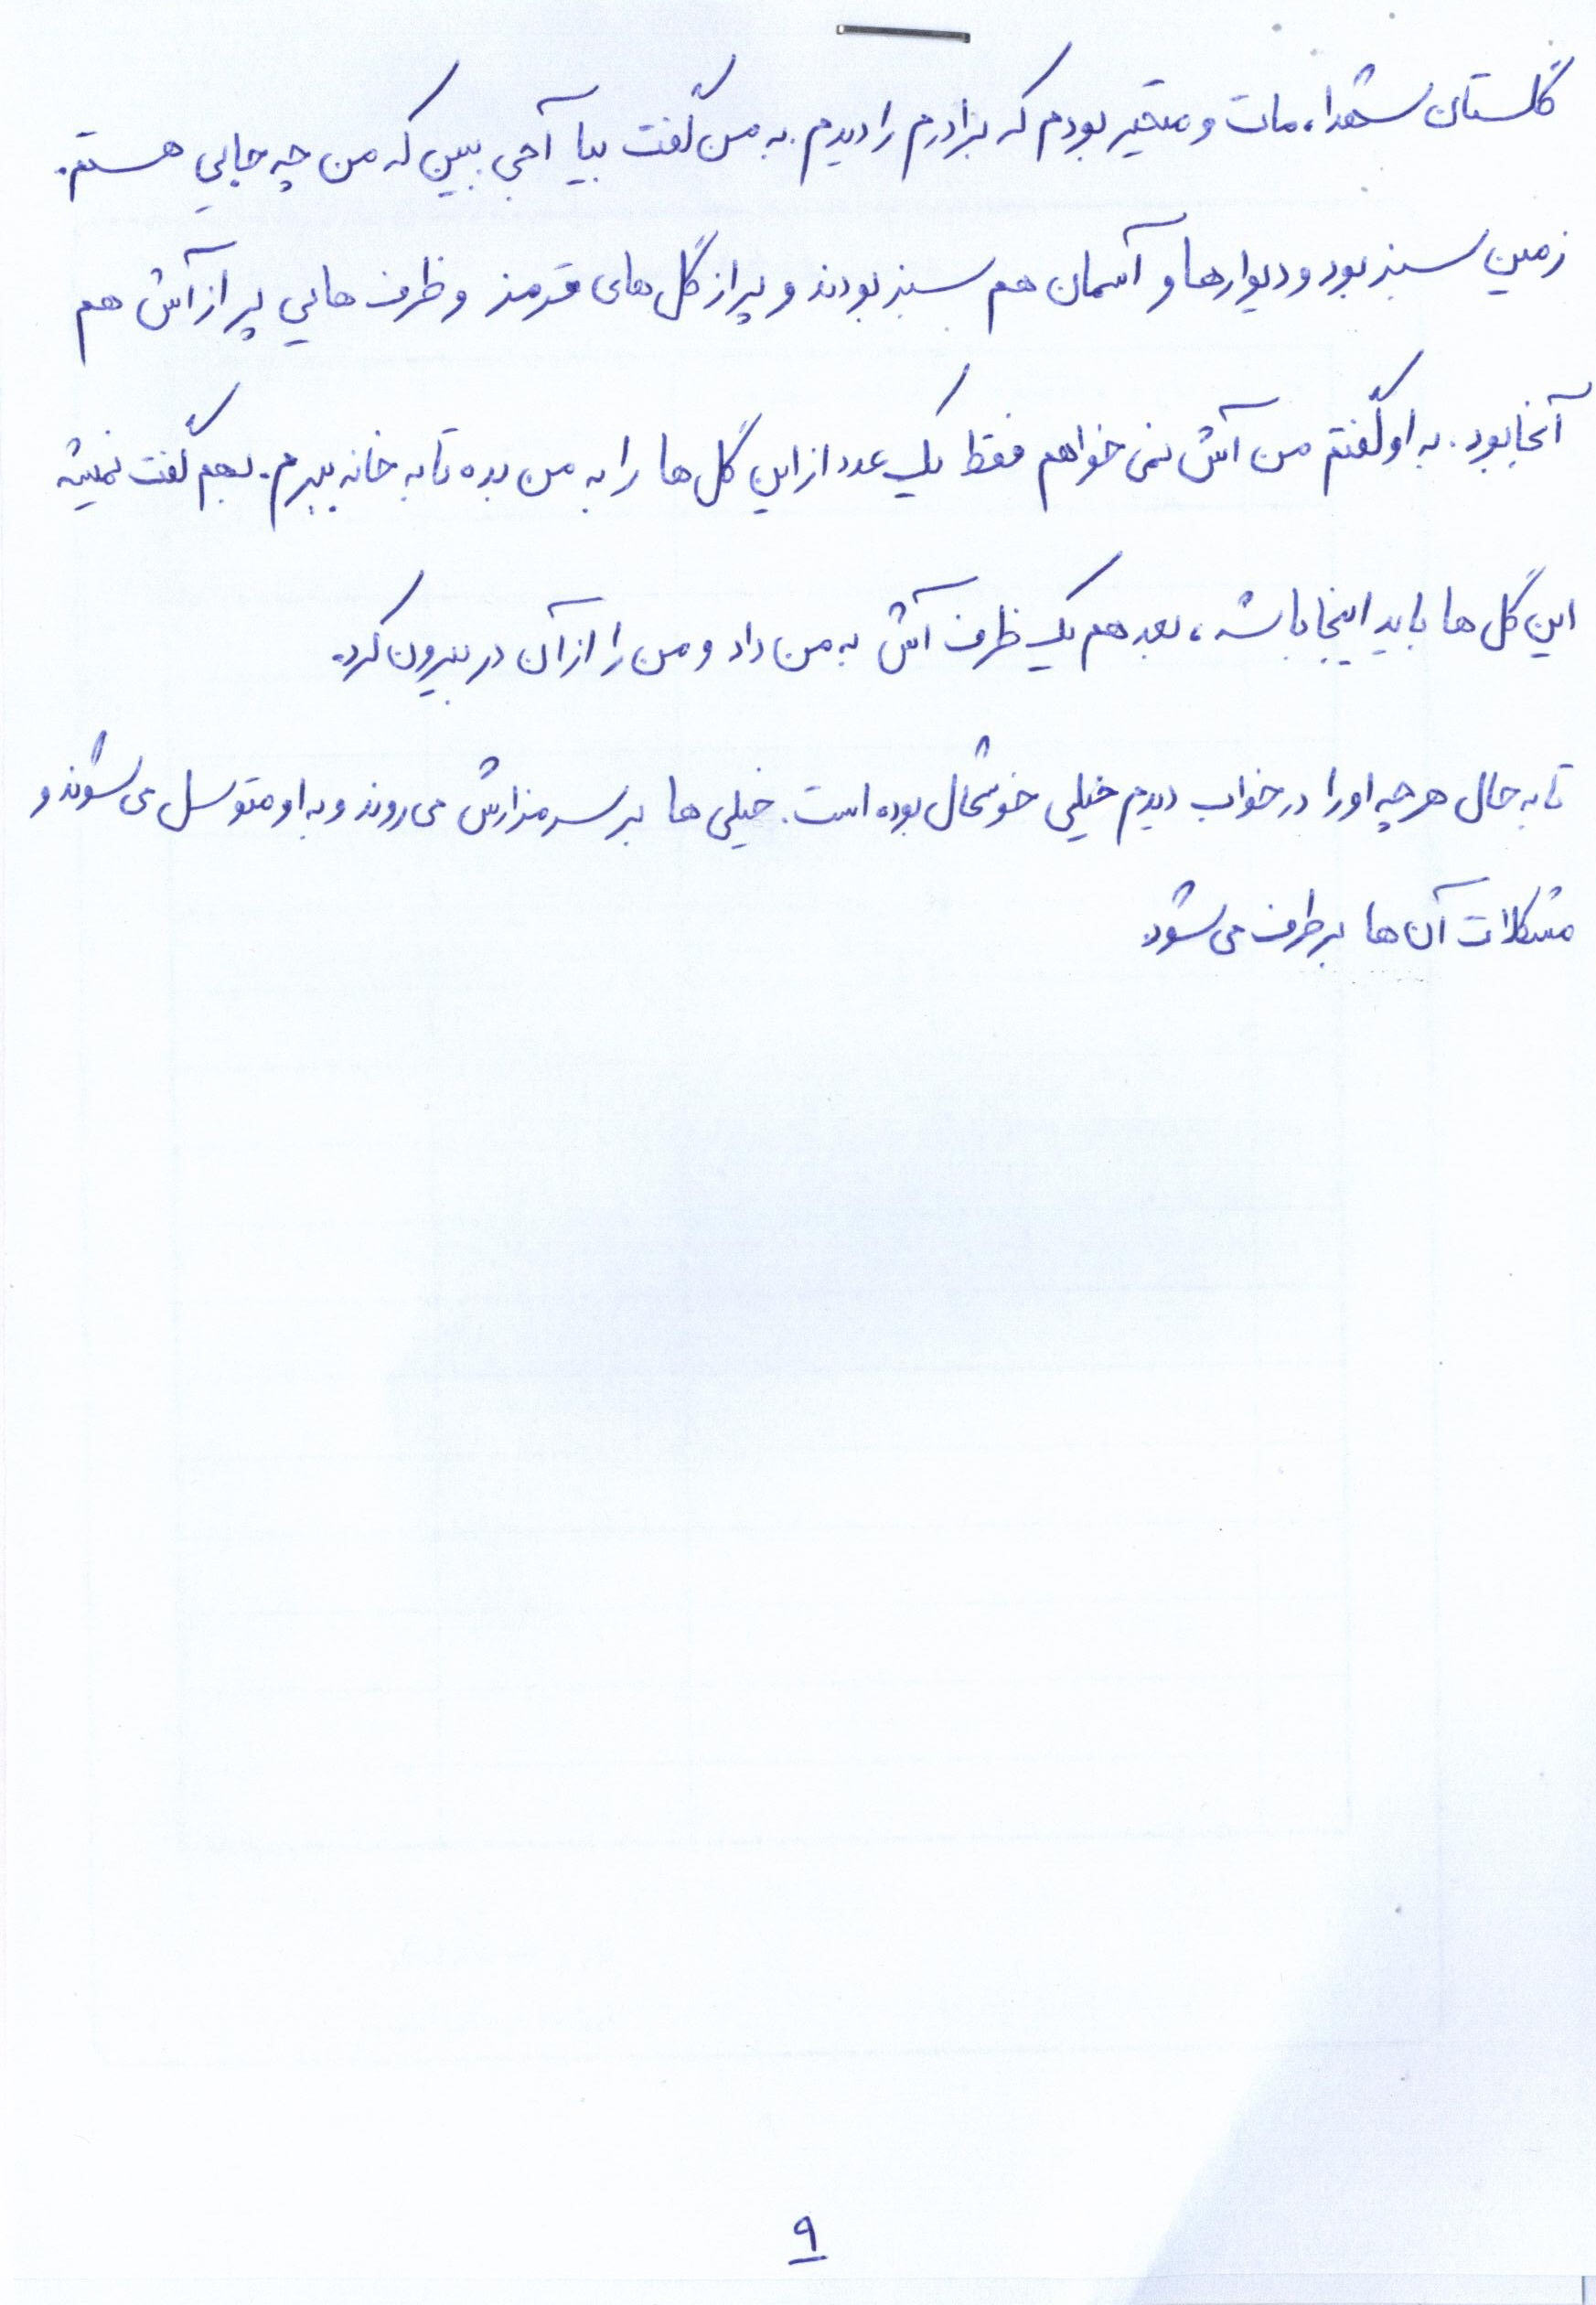 گلستان شهداء، مات و متحیر بودم که برادرم را دیدم. به من گفت بیا آجی ببین که من چه جایی هستم.
زمین سبز بود و دیوارها و آسمان هم سبز بودند و پر از گل های قرمز و ظرف هایی پر از آش هم
آنجا بود. به او گفتم من آش نمی خواهم فقط یک عدد از این گل ها را به من بده تا به خانه ببرم. بهم گفت نمیشه
این گل ها باید اینجا باشه، بعد هم یک ظرف آش به من داد و من را از آن در بیرون کرد.
تا به حال هر چه او را در خواب دیدم خیلی خوشحال بوده است. خیلی ها بر سر مزارش می روند و به او متوسل می شوند و
مشکلات آن ها برطرف می شود.
۹